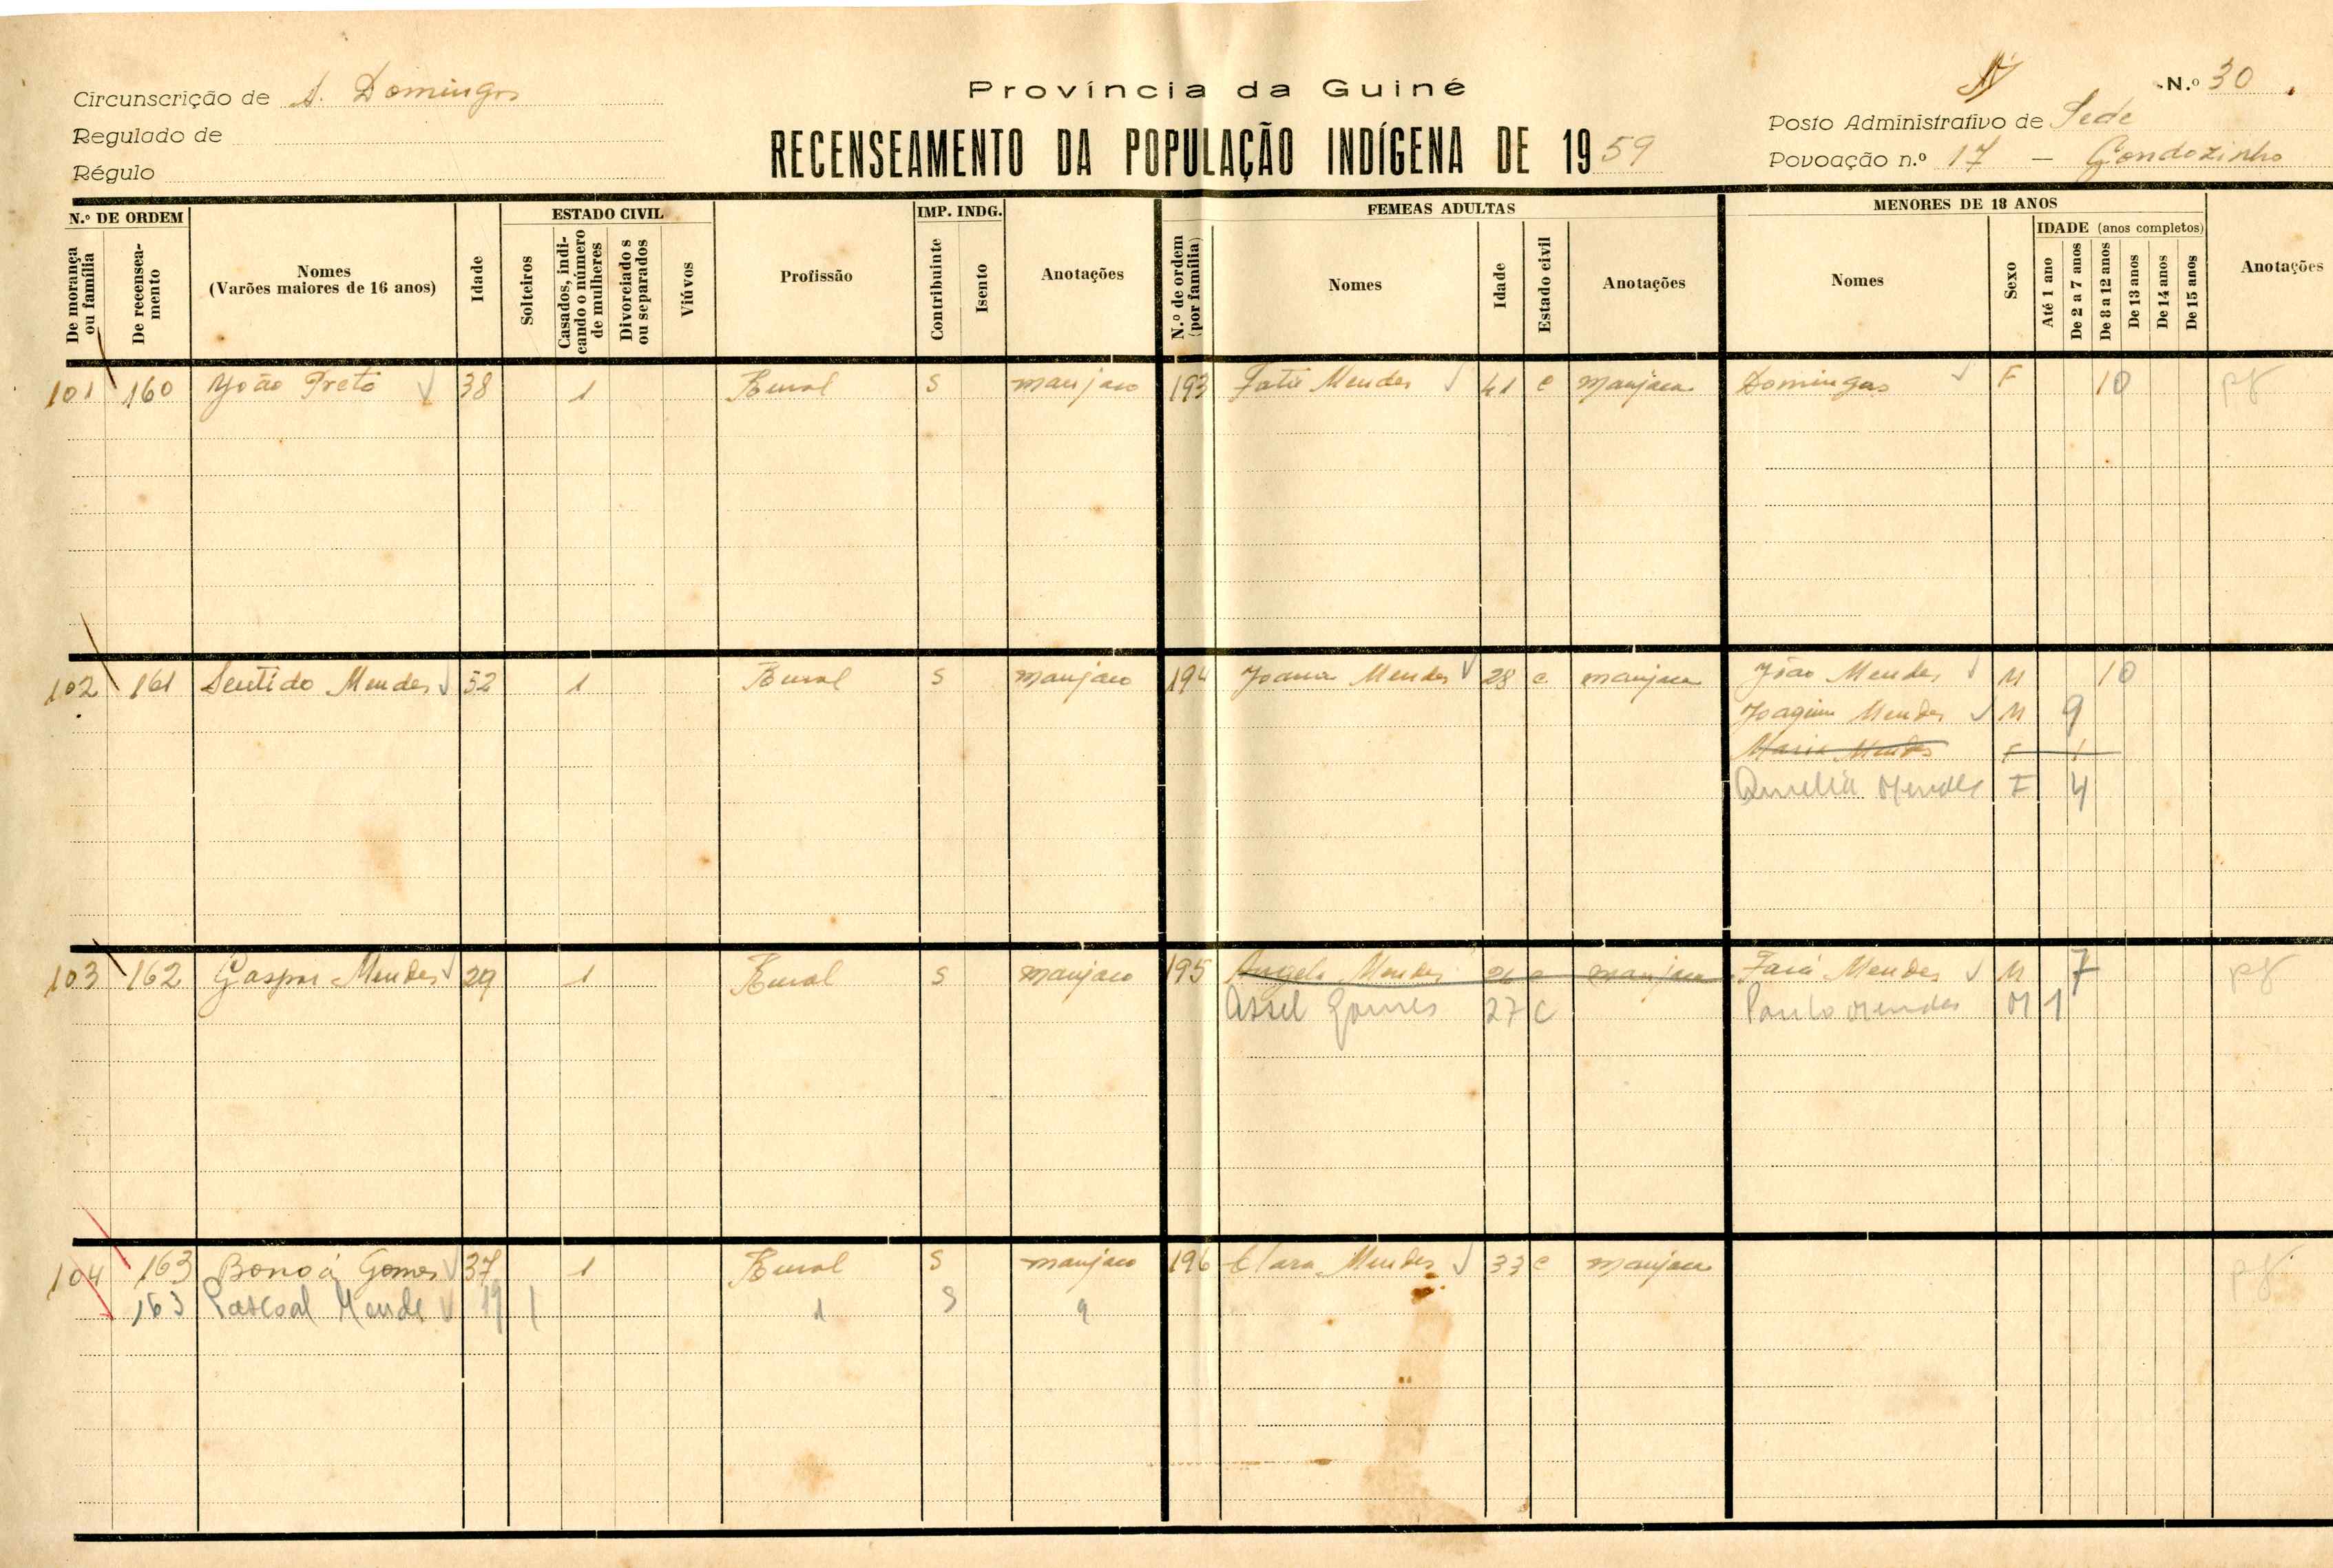 Província da Guiné
N.º 30
Circunscrição de S. Domingos
Regulado de
Régulo
RECENSEAMENTO DA POPULAÇÃO INDÍGENA DE 1959
Posto Administrativo de Sede
Povoação n.º 17 — Gondozinho
N.º DE ORDEM
De morança ou família
De recenseamento
Nomes
(Varões maiores de 16 anos)
Idade
ESTADO CIVIL
Solteiros
Casados, indicando o número de mulheres
Divorciados ou separados
Viúvos
Profissão
IMP. INDG.
Contribuinte
Isento
Anotações
FEMEAS ADULTAS
N.º de ordem (por família)
Nomes
Idade
Estado civil
Anotações
MENORES DE 18 ANOS
Nomes
Sexo
IDADE (anos completos)
Até 1 ano
De 2 a 7 anos
De 8 a 12 anos
De 13 anos
De 14 anos
De 15 anos
Anotações
101 160 João Preto 38 1 Rural S manjaco 193 Fatú Mendes 41 c manjaca Domingas F 10
102 161 Sentido Mendes 52 1 Rural S manjaco 194 Joana Mendes 28 c manjaca João Mendes M 10
Joaquim Mendes M 9
Maria Mendes F 1
Amelia Mendes F 4
103 162 Gaspar Mendes 29 1 Rural S manjaco 195 Angela Mendes 26 c manjaca Faiá Mendes M 7
Assel Gomes 27 C Paulo Mendes M 1
104 163 Bonoá Gomes 37 1 Rural S manjaco 196 Clara Mendes 33 c manjaca
163 Pascoal Mende 19 1 S